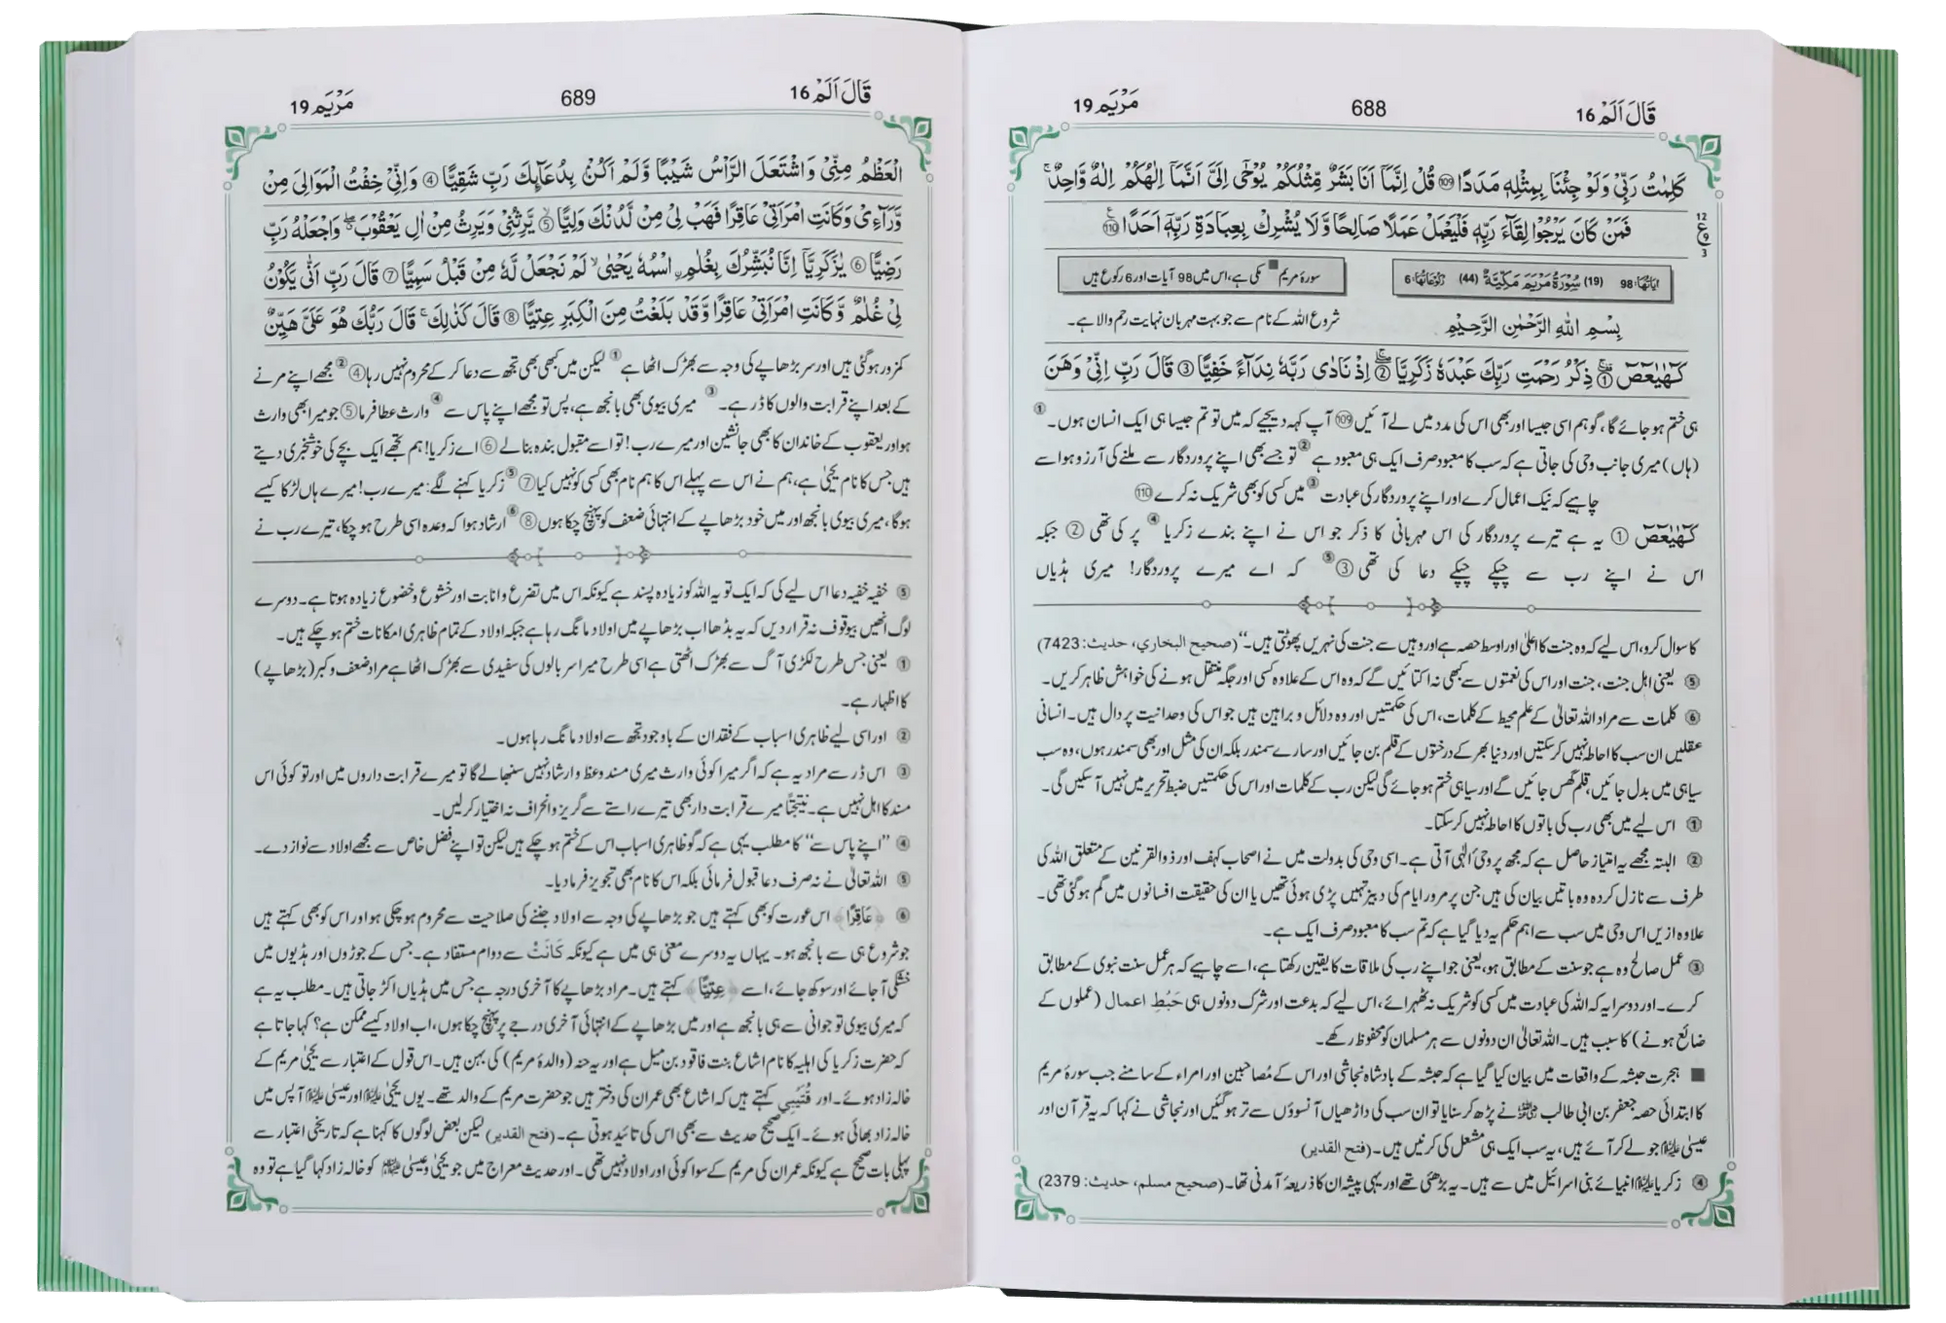 قَالَ اَلَمْ 16
688
مَرْيَم 19
كَلِمٰتُ رَبِّيْ وَلَوْ جِئْنَا بِمِثْلِهٖ مَدَدًا ۝109 قُلْ اِنَّمَآ اَنَا بَشَرٌ مِّثْلُكُمْ يُوْحٰٓى اِلَيَّ اَنَّمَآ اِلٰهُكُمْ اِلٰهٌ وَّاحِدٌ ۚ
فَمَنْ كَانَ يَرْجُوْا لِقَآءَ رَبِّهٖ فَلْيَعْمَلْ عَمَلًا صَالِحًا وَّلَا يُشْرِكْ بِعِبَادَةِ رَبِّهٖٓ اَحَدًا ۝110
12
ع
3
اٰيَاتُهَا: 98 (19) سُوْرَةُ مَرْيَمَ مَكِّيَّةٌ (44) رُكُوْعَاتُهَا: 6
سورۂ مریم ■ مکی ہے، اس میں 98 آیات اور 6 رکوع ہیں
بِسْمِ اللّٰهِ الرَّحْمٰنِ الرَّحِيْمِ
شروع اللہ کے نام سے جو بہت مہربان نہایت رحم والا ہے۔
كٓهٰيٰعٓصٓ ۝1 ذِكْرُ رَحْمَتِ رَبِّكَ عَبْدَهٗ زَكَرِيَّا ۝2 اِذْ نَادٰى رَبَّهٗ نِدَآءً خَفِيًّا ۝3 قَالَ رَبِّ اِنِّيْ وَهَنَ
ہی ختم ہو جائے گا، گو ہم اسی جیسا اور بھی اس کی مدد میں لے آئیں (109) آپ کہہ دیجیے کہ میں تو تم جیسا ہی ایک انسان ہوں۔①
(ہاں) میری جانب وحی کی جاتی ہے کہ سب کا معبود صرف ایک ہی معبود ہے② تو جسے بھی اپنے پروردگار سے ملنے کی آرزو ہو اسے
چاہیے کہ نیک اعمال کرے اور اپنے پروردگار کی عبادت③ میں کسی کو بھی شریک نہ کرے (110)
كٓهٰيٰعٓصٓ ① یہ ہے تیرے پروردگار کی اس مہربانی کا ذکر جو اس نے اپنے بندے زکریا④ پر کی تھی ② جبکہ
اس نے اپنے رب سے چپکے چپکے دعا کی تھی ③⑤ کہ اے میرے پروردگار! میری ہڈیاں
کا سوال کرو، اس لیے کہ وہ جنت کا اعلیٰ اور اوسط حصہ ہے اور وہیں سے جنت کی نہریں پھوٹتی ہیں۔“ (صحيح البخاري، حديث: 7423)
⑤ یعنی اہل جنت، جنت اور اس کی نعمتوں سے کبھی نہ اکتائیں گے کہ وہ اس کے علاوہ کسی اور جگہ منتقل ہونے کی خواہش ظاہر کریں۔
⑥ کلمات سے مراد اللہ تعالیٰ کے علم محیط کے کلمات، اس کی حکمتیں اور وہ دلائل و براہین ہیں جو اس کی وحدانیت پر دال ہیں۔ انسانی
عقلیں ان سب کا احاطہ نہیں کر سکتیں اور دنیا بھر کے درختوں کے قلم بن جائیں اور سارے سمندر بلکہ ان کی مثل اور بھی سمندر ہوں، وہ سب
سیاہی میں بدل جائیں، قلم گھس جائیں گے اور سیاہی ختم ہو جائے گی لیکن رب کے کلمات اور اس کی حکمتیں ضبط تحریر میں نہیں آ سکیں گی۔
① اس لیے میں بھی رب کی باتوں کا احاطہ نہیں کر سکتا۔
② البتہ مجھے یہ امتیاز حاصل ہے کہ مجھ پر وحیٔ الٰہی آتی ہے۔ اسی وحی کی بدولت میں نے اصحاب کہف اور ذوالقرنین کے متعلق اللہ کی
طرف سے نازل کردہ وہ باتیں بیان کی ہیں جن پر مرور ایام کی دبیز تہیں پڑی ہوئی تھیں یا ان کی حقیقت افسانوں میں گم ہو گئی تھی۔
علاوہ ازیں اس وحی میں سب سے اہم حکم یہ دیا گیا ہے کہ تم سب کا معبود صرف ایک ہے۔
③ عمل صالح وہ ہے جو سنت کے مطابق ہو، یعنی جو اپنے رب کی ملاقات کا یقین رکھتا ہے، اسے چاہیے کہ ہر عمل سنت نبوی کے مطابق
کرے۔ اور دوسرا یہ کہ اللہ کی عبادت میں کسی کو شریک نہ ٹھہرائے، اس لیے کہ بدعت اور شرک دونوں ہی حَبْطِ اعمال (عملوں کے
ضائع ہونے) کا سبب ہیں۔ اللہ تعالیٰ ان دونوں سے ہر مسلمان کو محفوظ رکھے۔
■ ہجرت حبشہ کے واقعات میں بیان کیا گیا ہے کہ حبشہ کے بادشاہ نجاشی اور اس کے مُصاحبین اور امراء کے سامنے جب سورۂ مریم
کا ابتدائی حصہ جعفر بن ابی طالب ؓ نے پڑھ کر سنایا تو ان سب کی داڑھیاں آنسوؤں سے تر ہو گئیں اور نجاشی نے کہا کہ یہ قرآن اور
عیسیٰ علیہ السلام جو لے کر آئے ہیں، یہ سب ایک ہی مشعل کی کرنیں ہیں۔ (فتح القدير)
④ زکریا علیہ السلام انبیائے بنی اسرائیل میں سے ہیں۔ یہ بڑھئی تھے اور یہی پیشہ ان کا ذریعۂ آمدنی تھا۔ (صحيح مسلم، حديث: 2379)
قَالَ اَلَمْ 16
689
مَرْيَم 19
الْعَظْمُ مِنِّيْ وَاشْتَعَلَ الرَّاْسُ شَيْبًا وَّلَمْ اَكُنْۢ بِدُعَآئِكَ رَبِّ شَقِيًّا ۝4 وَاِنِّيْ خِفْتُ الْمَوَالِيَ مِنْ
وَّرَآءِيْ وَكَانَتِ امْرَاَتِيْ عَاقِرًا فَهَبْ لِيْ مِنْ لَّدُنْكَ وَلِيًّا ۝5 يَّرِثُنِيْ وَيَرِثُ مِنْ اٰلِ يَعْقُوْبَ ۖ وَاجْعَلْهُ رَبِّ
رَضِيًّا ۝6 يٰزَكَرِيَّآ اِنَّا نُبَشِّرُكَ بِغُلٰمِ ۨاسْمُهٗ يَحْيٰى ۙ لَمْ نَجْعَلْ لَّهٗ مِنْ قَبْلُ سَمِيًّا ۝7 قَالَ رَبِّ اَنّٰى يَكُوْنُ
لِيْ غُلٰمٌ وَّكَانَتِ امْرَاَتِيْ عَاقِرًا وَّقَدْ بَلَغْتُ مِنَ الْكِبَرِ عِتِيًّا ۝8 قَالَ كَذٰلِكَ ۚ قَالَ رَبُّكَ هُوَ عَلَيَّ هَيِّنٌ
کمزور ہو گئی ہیں اور سر بڑھاپے کی وجہ سے بھڑک اٹھا ہے① لیکن میں کبھی بھی تجھ سے دعا کر کے محروم نہیں رہا ④② مجھے اپنے مرنے
کے بعد اپنے قرابت والوں کا ڈر ہے۔③ میری بیوی بھی بانجھ ہے، پس تو مجھے اپنے پاس سے④ وارث عطا فرما ⑤ جو میرا بھی وارث
ہو اور یعقوب کے خاندان کا بھی جانشین اور میرے رب! تو اسے مقبول بندہ بنا لے ⑥ اے زکریا! ہم تجھے ایک بچے کی خوشخبری دیتے
ہیں جس کا نام یحییٰ ہے، ہم نے اس سے پہلے اس کا ہم نام بھی کسی کو نہیں کیا ⑦⑤ زکریا کہنے لگے: میرے رب! میرے ہاں لڑکا کیسے
ہو گا، میری بیوی بانجھ اور میں خود بڑھاپے کے انتہائی ضعف کو پہنچ چکا ہوں ⑧⑥ ارشاد ہوا کہ وعدہ اسی طرح ہو چکا، تیرے رب نے
⑤ خفیہ خفیہ دعا اس لیے کی کہ ایک تو یہ اللہ کو زیادہ پسند ہے کیونکہ اس میں تضرع و انابت اور خشوع و خضوع زیادہ ہوتا ہے۔ دوسرے
لوگ انھیں بیوقوف نہ قرار دیں کہ یہ بڈھا اب بڑھاپے میں اولاد مانگ رہا ہے جبکہ اولاد کے تمام ظاہری امکانات ختم ہو چکے ہیں۔
① یعنی جس طرح لکڑی آگ سے بھڑک اٹھتی ہے اسی طرح میرا سر بالوں کی سفیدی سے بھڑک اٹھا ہے مراد ضعف و کبر (بڑھاپے)
کا اظہار ہے۔
② اور اسی لیے ظاہری اسباب کے فقدان کے باوجود تجھ سے اولاد مانگ رہا ہوں۔
③ اس ڈر سے مراد یہ ہے کہ اگر میرا کوئی وارث میری مسند وعظ و ارشاد نہیں سنبھالے گا تو میرے قرابت داروں میں اور تو کوئی اس
مسند کا اہل نہیں ہے۔ نتیجتاً میرے قرابت دار بھی تیرے راستے سے گریز و انحراف نہ اختیار کر لیں۔
④ ”اپنے پاس سے“ کا مطلب یہی ہے کہ گو ظاہری اسباب اس کے ختم ہو چکے ہیں لیکن تو اپنے فضل خاص سے مجھے اولاد سے نواز دے۔
⑤ اللہ تعالیٰ نے نہ صرف دعا قبول فرمائی بلکہ اس کا نام بھی تجویز فرما دیا۔
⑥ ﴿عَاقِرًا﴾ اس عورت کو بھی کہتے ہیں جو بڑھاپے کی وجہ سے اولاد جننے کی صلاحیت سے محروم ہو چکی ہو اور اس کو بھی کہتے ہیں
جو شروع ہی سے بانجھ ہو۔ یہاں یہ دوسرے معنی ہی میں ہے کیونکہ كَانَتْ سے دوام مستفاد ہے۔ جس کے جوڑوں اور ہڈیوں میں
خشکی آ جائے اور سوکھ جائے، اسے ﴿عِتِيًّا﴾ کہتے ہیں۔ مراد بڑھاپے کا آخری درجہ ہے جس میں ہڈیاں اکڑ جاتی ہیں۔ مطلب یہ ہے
کہ میری بیوی تو جوانی سے ہی بانجھ ہے اور میں بڑھاپے کے انتہائی آخری درجے پر پہنچ چکا ہوں، اب اولاد کیسے ممکن ہے؟ کہا جاتا ہے
کہ حضرت زکریا کی اہلیہ کا نام اشاع بنت فاقود بن میل ہے اور یہ حنہ (والدۂ مریم) کی بہن ہیں۔ اس قول کے اعتبار سے یحییٰ مریم کے
خالہ زاد ہوئے۔ اور قُتَيْبِي کہتے ہیں کہ اشاع بھی عمران کی دختر ہیں جو حضرت مریم کے والد تھے۔ یوں یحییٰ علیہ السلام اور عیسیٰ علیہ السلام آپس میں
خالہ زاد بھائی ہوئے۔ ایک صحیح حدیث سے بھی اس کی تائید ہوتی ہے۔ (فتح القدير) لیکن بعض لوگوں کا کہنا ہے کہ تاریخی اعتبار سے
پہلی بات صحیح ہے کیونکہ عمران کی مریم کے سوا کوئی اور اولاد نہیں تھی۔ اور حدیث معراج میں جو یحییٰ و عیسیٰ علیہما السلام کو خالہ زاد کہا گیا ہے تو وہ